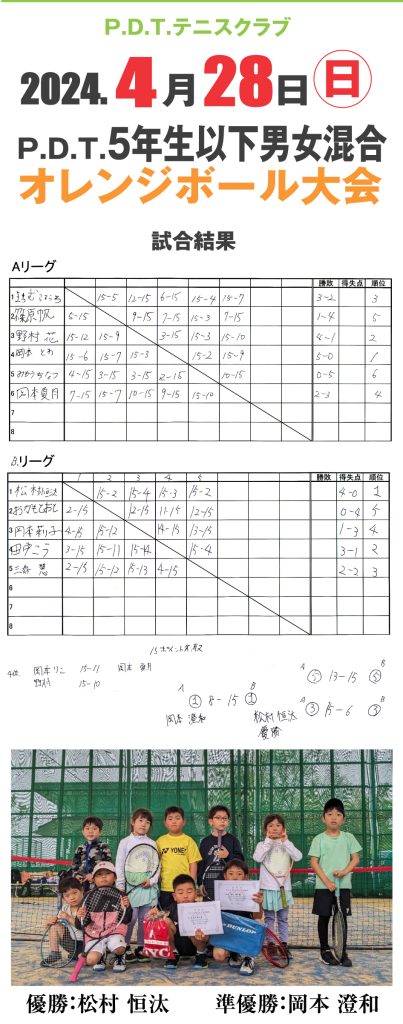 P.D.T.テニスクラブ
2024.4月28日(日)
P.D.T.5年生以下男女混合
オレンジボール大会
試合結果
Aリーグ
勝敗 得失点 順位
1 15-5 12-15 6-15 15-4 15-7 3-2 3
2 篠原帆 5-15 9-15 7-15 15-3 7-15 1-4 5
3 野村 花 15-12 15-9 3-15 15-3 15-10 4-1 2
4 岡本 とわ 15-6 15-7 15-3 15-2 15-9 5-0 1
5 4-15 3-15 3-15 2-15 10-15 0-5 6
6 岡本夏月 7-15 15-7 10-15 9-15 15-10 2-3 4
7
8
B.リーグ
1 2 3 4 5 勝敗 得失点 順位
1 松村恒汰 15-2 15-4 15-3 15-2 4-0 1
2 2-15 12-15 11-15 12-15 0-4 5
3 岡本莉子 4-15 15-12 14-15 13-15 1-3 4
4 3-15 15-11 15-14 15-4 3-1 2
5 三好 慧 2-15 15-12 15-13 4-15 2-2 3
6
7
8
15ポイント先取
4位 岡本りこ 15-11 岡本 夏月
野村 15-10
A B
② 13-15 ②
A B
① 8-15 ①
岡本 澄和 松村 恒汰
優勝
A B
③ 15-6 ③
YONEX
DUNLOP
優勝:松村 恒汰 準優勝:岡本 澄和